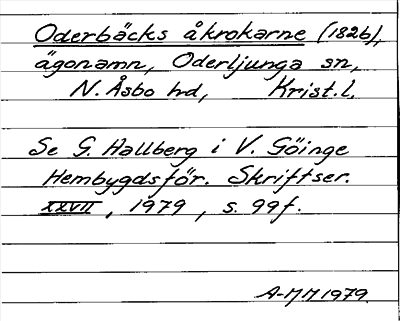 Oderbäcks åkrokarne (1826),
ägonamn, Oderljunga sn,
N. Åsbo hd, Krist.l.
Se G. Hallberg i V. Göinge
Hembygdsför. Skriftser.
XXVII, 1979, s. 99f.
A-MM 1979